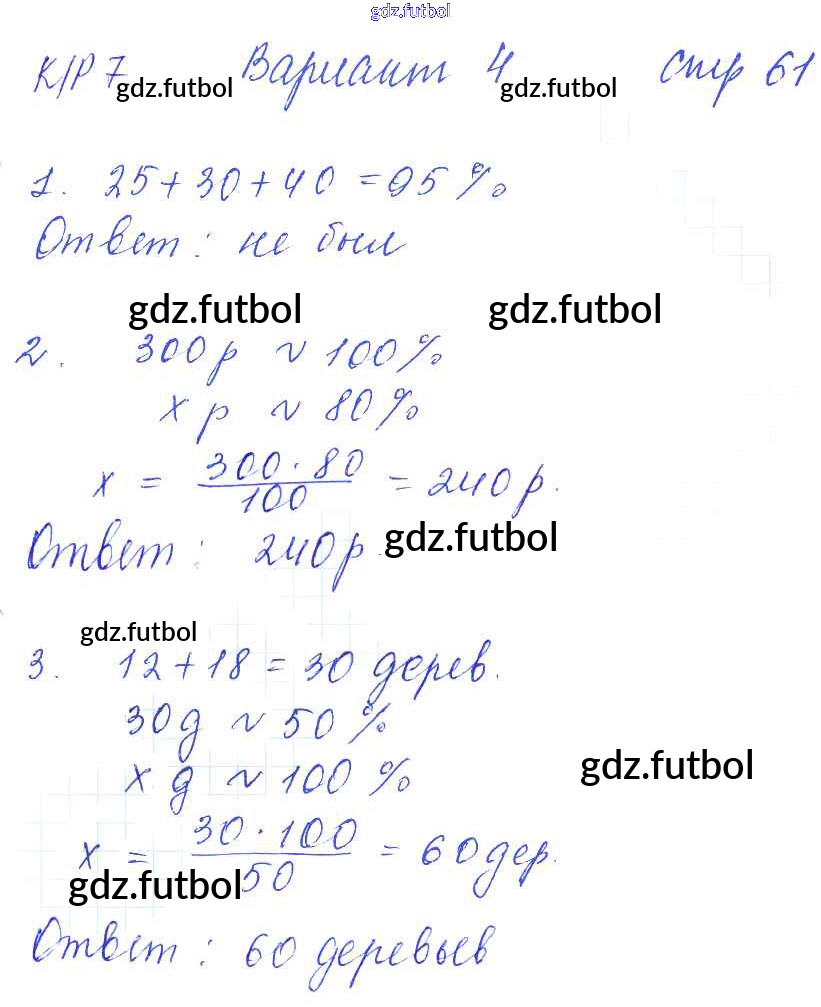 gdz.futbol
К/Р 7 Вариант 4 стр 61
gdz.futbol gdz.futbol
1. 25 + 30 + 40 = 95 %
Ответ: не был
gdz.futbol gdz.futbol
2. 300 р ~ 100 %
х р ~ 80 %
х = 300 · 80 / 100 = 240 р.
Ответ: 240 р.
gdz.futbol
gdz.futbol
3. 12 + 18 = 30 дерев.
30 д ~ 50 %
х д ~ 100 %
gdz.futbol
х = 30 · 100 / 50 = 60 дер.
gdz.futbol
Ответ: 60 деревьев